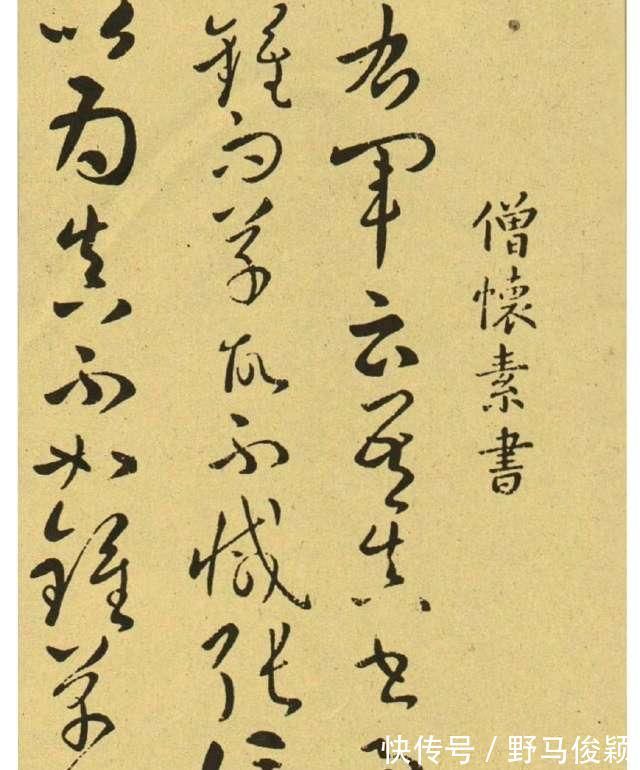 僧懷素書
右軍云吾真書
鍾而草故不減張
以為真不如鍾草
快传号/野马俊颖